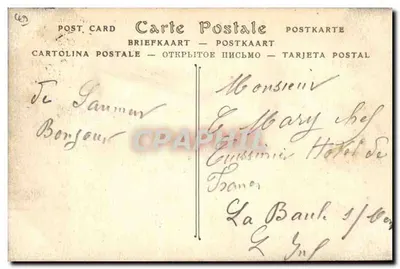 49
POST CARD Carte Postale POSTKARTE
BRIEFKAART — POSTKAART
CARTOLINA POSTALE — ОТКРЫТОЕ ПИСЬМО — TARJETA POSTAL
de Saumur
Bonjour
Monsieur
Mary chef
Cuisinier Hotel de
France
La Baule s/
CPAPHIL